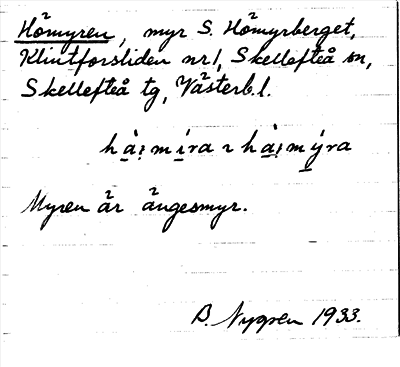 Hömyren, myr S. Hömyrberget,
Klintforsliden nr 1, Skellefteå sn,
Skellefteå tg, Västerb. l.
hà̱i̯mí̱ra ~ hà̱i̯mý̱ra
Myren är ängesmyr.
B. Nygren 1933.